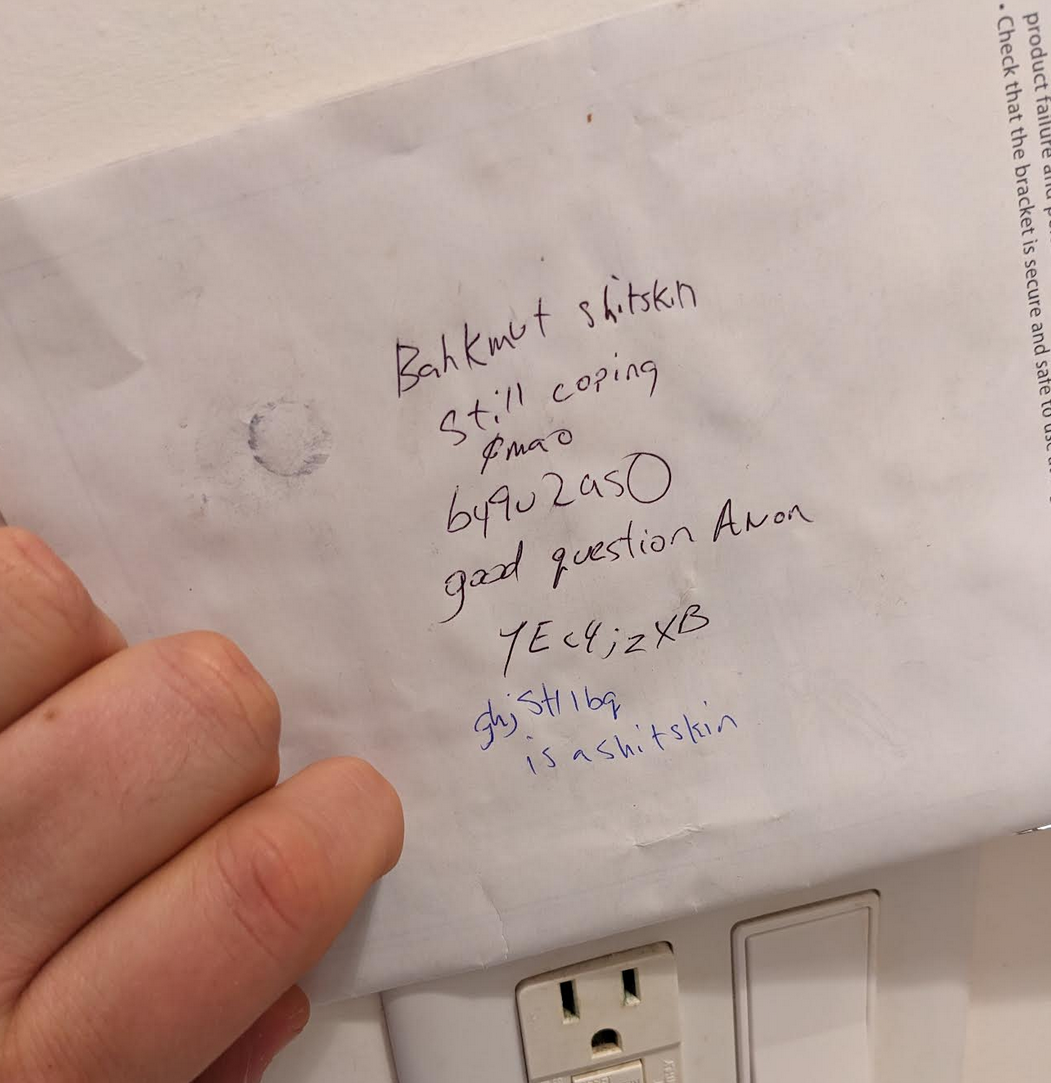 product failure and
• Check that the bracket is secure and safe to use
Bahkmut shitskin
still coping
lmao
by9u2as0
good question Anon
YEc4jzXB
ghjSt11bq
is a shitskin